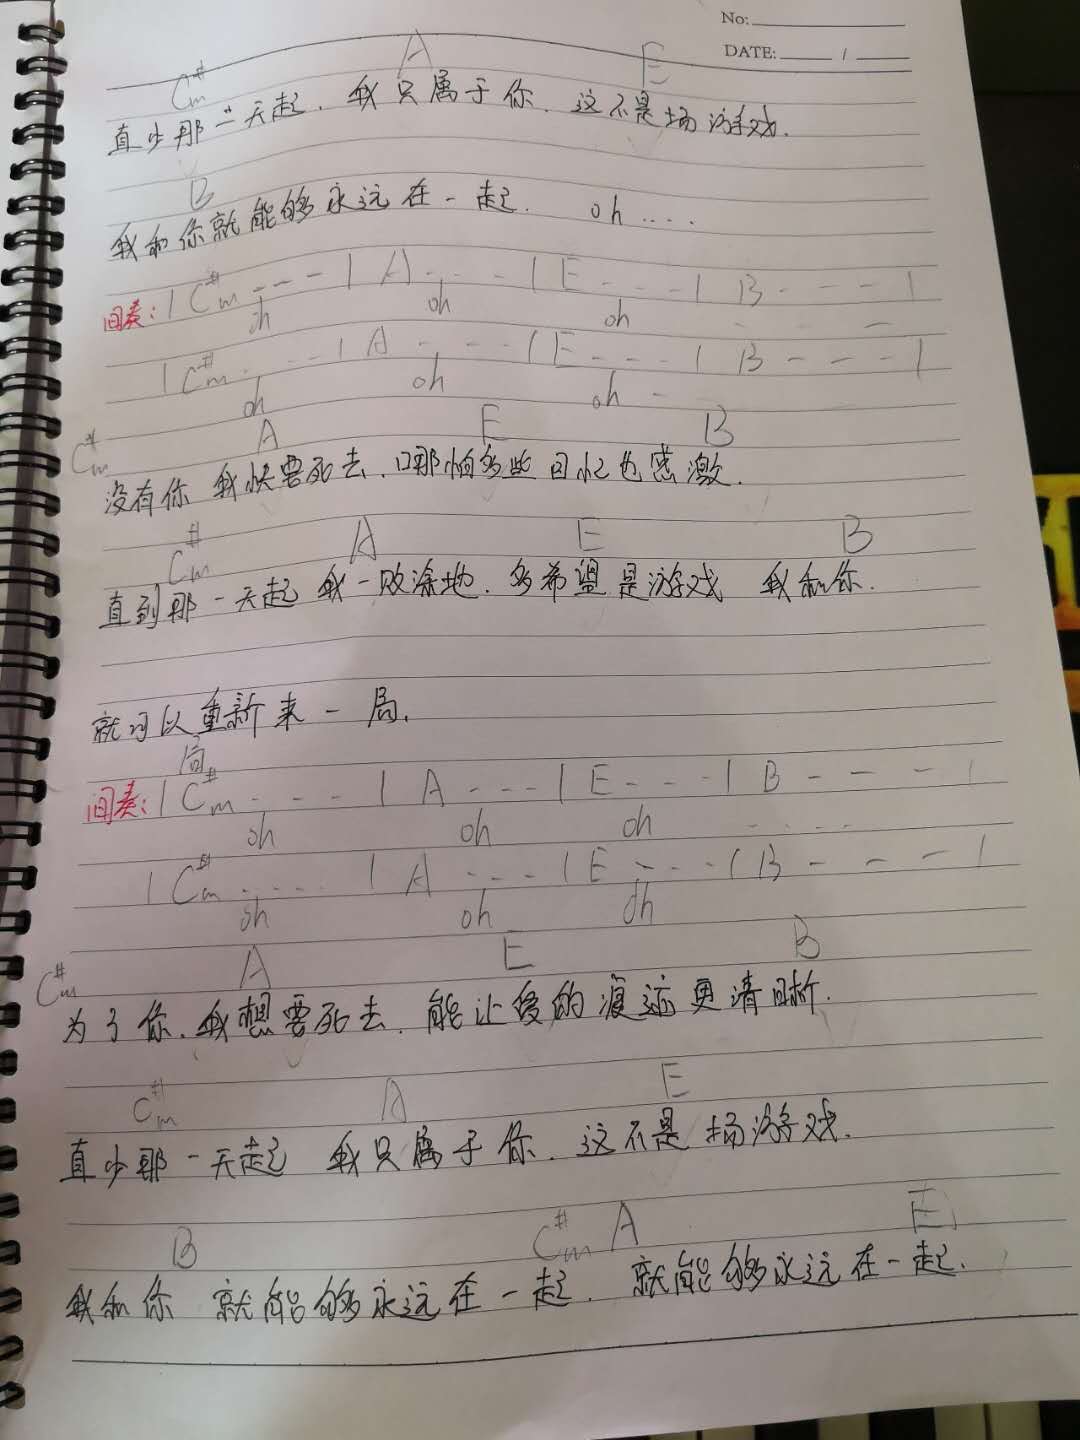 No:
DATE: /
C#m A E
直少那一天起.我只属于你.这不是场游戏.
B
我和你就能够永远在一起. oh ....
间奏: | C#m - - - | A - - - | E - - - | B - - - |
oh oh oh
| C#m - - - | A - - - | E - - - | B - - - |
oh oh oh
C#m A E B
没有你 我快要死去.口那怕多些回忆也感激.
C#m A E B
直到那一天起 我一败涂地.多希望是游戏 我和你.
就可以重新来一局.
局
间奏: | C#m - - - | A - - - | E - - - | B - - - |
oh oh oh
| C#m - - - | A - - - | E - - - | B - - - |
oh oh oh
C#m A E B
为了你.我想要死去.能让爱的痕迹更清晰.
C#m A E
直少那一天起 我只属于你.这不是场游戏.
B C#m A E
我和你 就能够永远在一起. 就能够永远在一起.